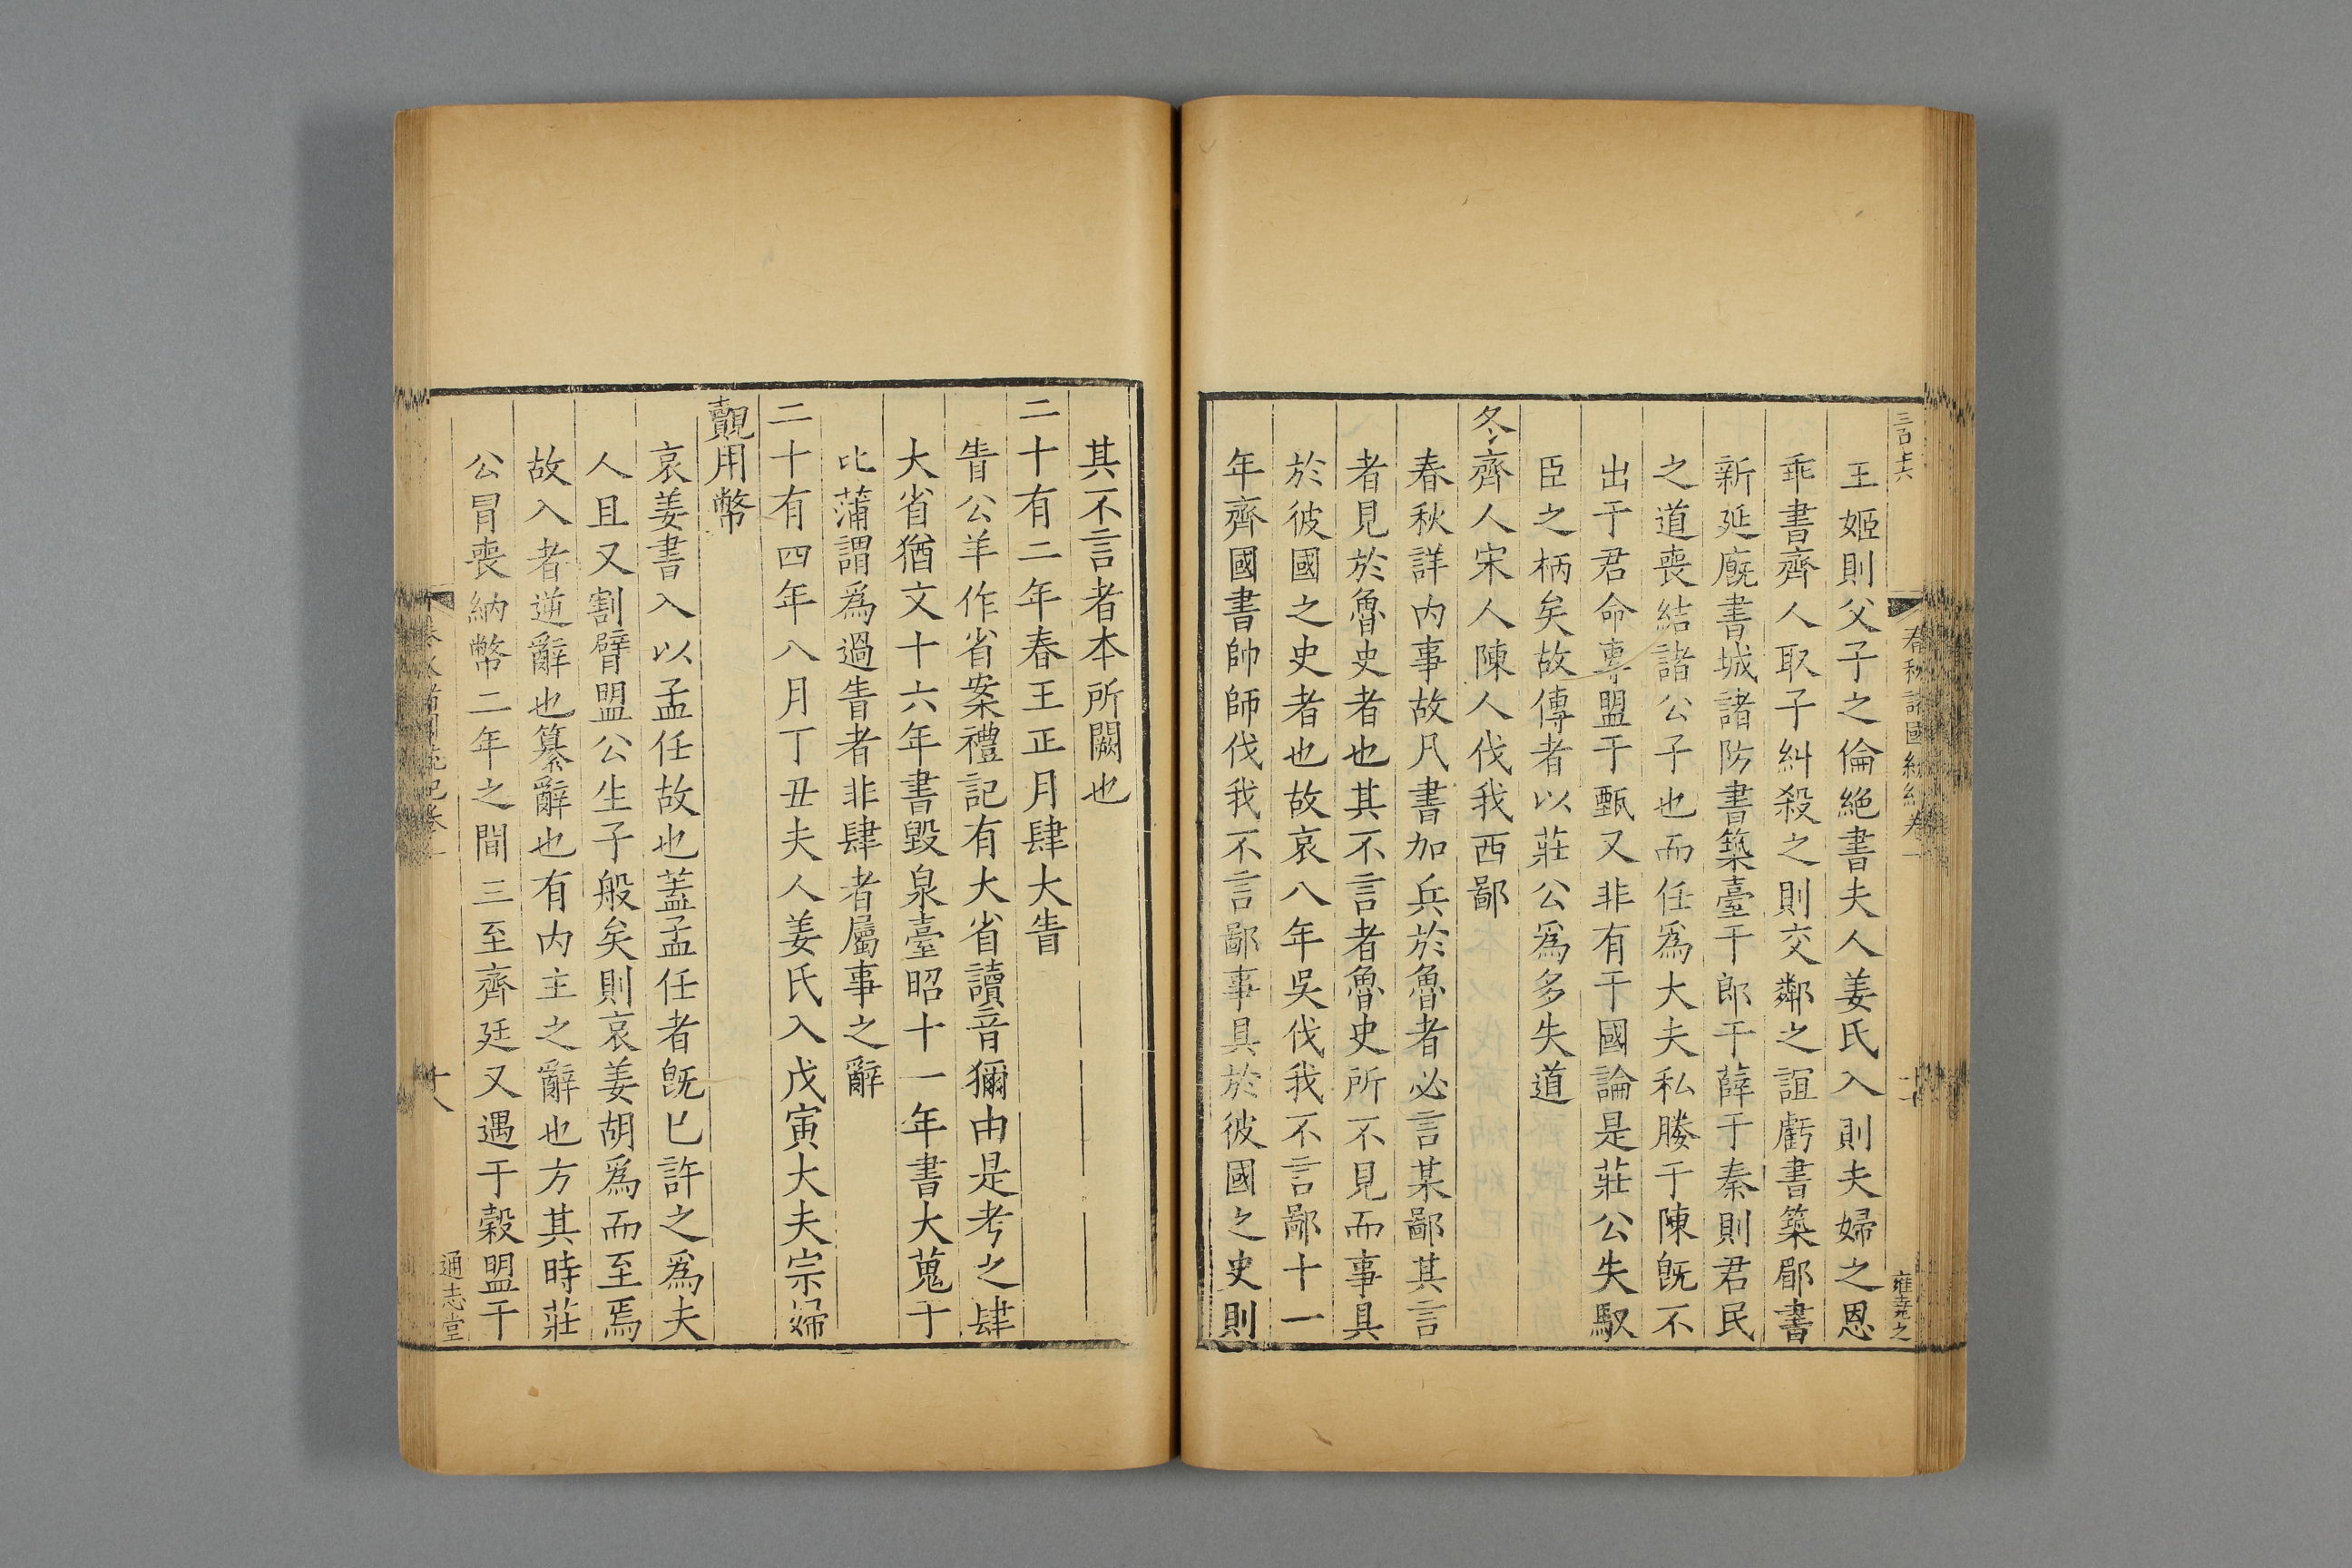 王姬則父子之倫絶書夫人姜氏入則夫婦之恩
乖書齊人取子糾殺之則交鄰之誼虧書築郿書
新延廐書城諸防書築臺于郎于薛于秦則君民
之道喪結諸公子也而任爲大夫私媵于陳旣不
出于君命專盟于甄又非有于國論是莊公失馭
臣之柄矣故傳者以莊公爲多失道
冬齊人宋人陳人伐我西鄙
春秋詳内事故凡書加兵於魯者必言某鄙其言
者見於魯史者也其不言者魯史所不見而事具
於彼國之史者也故哀八年吳伐我不言鄙十一
年齊國書帥師伐我不言鄙事具於彼國之史則
其不言者本所闕也
二十有二年春王正月肆大眚
眚公羊作省案禮記有大省讀音獮由是考之肆
大省猶文十六年書毀泉臺昭十一年書大蒐于
比蒲謂爲過眚者非肆者屬事之辭
二十有四年八月丁丑夫人姜氏入戊寅大夫宗婦
覿用幣
哀姜書入以孟任故也蓋孟任者旣已許之爲夫
人且又割臂盟公生子般矣則哀姜胡爲而至焉
故入者逆辭也篡辭也有内主之辭也方其時莊
公冒喪納幣二年之間三至齊廷又遇于穀盟于
通志堂